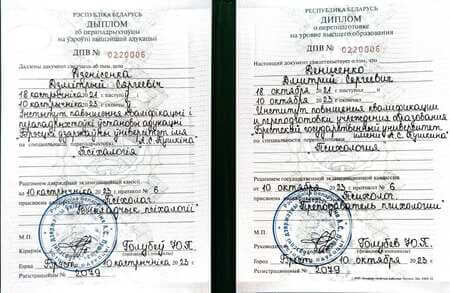 РЭСПУБЛІКА БЕЛАРУСЬ
ДЫПЛОМ
аб перападрыхтоўцы
на ўзроўні вышэйшай адукацыі
ДПВ № 0220006
Дадзены дыплом сведчыць аб тым, што
Дзмітрый Сяргеевіч
18 кастрычніка 21 г. паступіў
10 кастрычніка 23
Інстытут павышэння кваліфікацыі і
перападрыхтоўкі установы адукацыі
Брэсцкі дзяржаўны ўніверсітэт імя
А.С. Пушкіна
па спецыяльнасці перападрыхтоўкі
"Псіхалогія"
Рашэннем дзяржаўнай экзаменацыйнай камісіі
ад 10 кастрычніка 23 г. пратакол № 6
Псіхолаг.
Выкладчык псіхалогіі
М.П.
Голубеў Ю.П.
Горад Брэст 10 кастрычніка 2023 г.
Рэгістрацыйны № 2079
РЕСПУБЛИКА БЕЛАРУСЬ
ДИПЛОМ
о переподготовке
на уровне высшего образования
ДПВ № 0220006
Настоящий диплом свидетельствует о том, что
Денищенко
Дмитрий Сергеевич
18 октября 21
10 октября 23
Институт повышения квалификации
и переподготовки учреждения образования
Брестский государственный университет
имени А.С. Пушкина
по специальности переподготовки
"Психология"
Решением государственной экзаменационной комиссии
от 10 октября 23 г. протокол № 6
Психолог.
Преподаватель психологии
М.П.
Руководитель Голубев Ю.П.
Город Брест 10 октября 2023 г.
Регистрационный № 2079